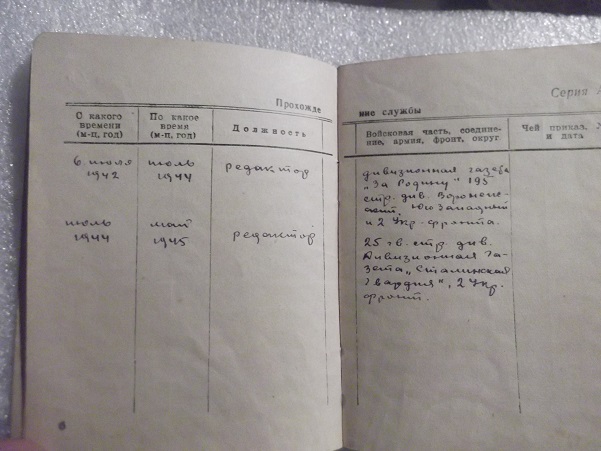 Прохожде
ние службы
Серия А
С какого
времени
(м-ц, год)
По какое
время
(м-ц, год)
Должность
Войсковая часть, соедине-
ние, армия, фронт, округ
Чей приказ, №
и дата
6 июля
1942
июль
1944
редактор
дивизионная газета
„За Родину" 195
стр. див. Воронеж-
ский, Юго Западный
и 2 Укр. фронта
июль
1944
май
1945
редактор
25 гв. стр. див.
Дивизионная га-
зета „Сталинская
Гвардия", 2 Укр.
фронт.
6